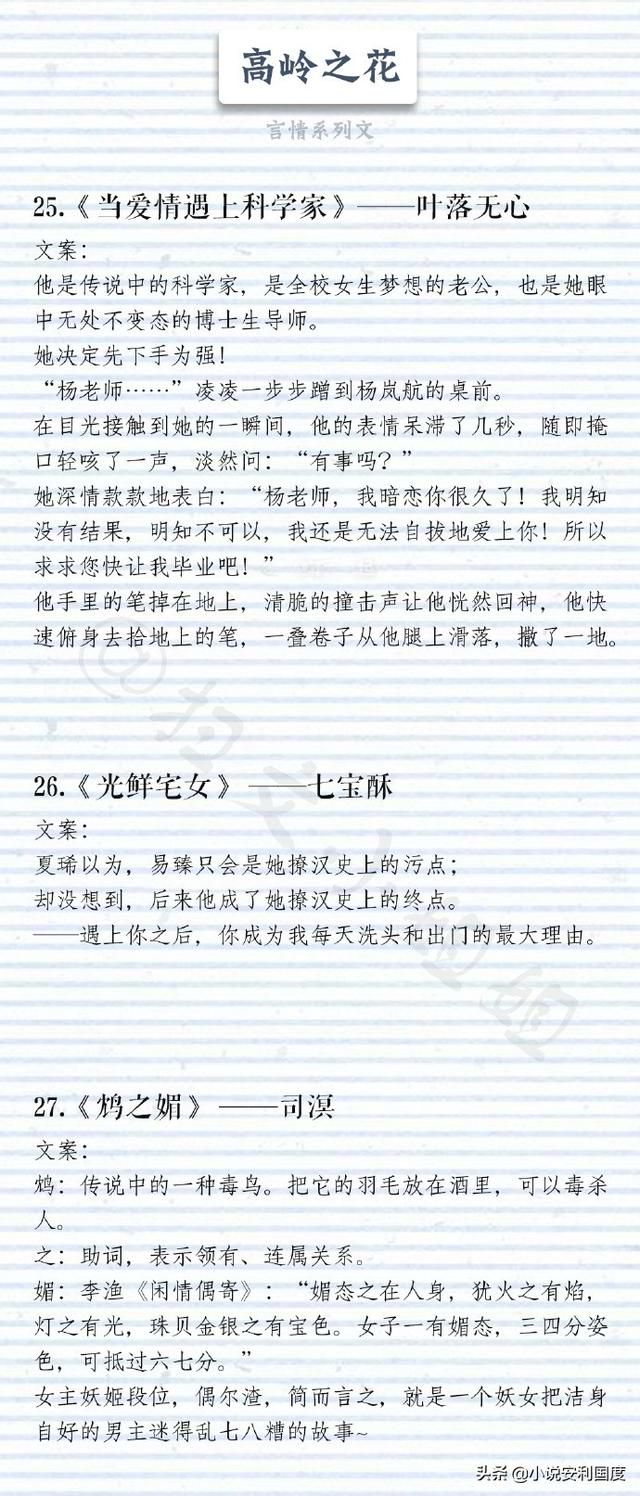 高岭之花
言情系列文
25.《当爱情遇上科学家》——叶落无心
文案：
他是传说中的科学家，是全校女生梦想的老公，也是她眼
中无处不变态的博士生导师。
她决定先下手为强！
“杨老师……”凌凌一步步蹭到杨岚航的桌前。
在目光接触到她的一瞬间，他的表情呆滞了几秒，随即掩
口轻咳了一声，淡然问：“有事吗？”
她深情款款地表白：“杨老师，我暗恋你很久了！我明知
没有结果，明知不可以，我还是无法自拔地爱上你！所以
求求您快让我毕业吧！”
他手里的笔掉在地上，清脆的撞击声让他恍然回神，他快
速俯身去拾地上的笔，一叠卷子从他腿上滑落，撒了一地。
26.《光鲜宅女》——七宝酥
文案：
夏琋以为，易臻只会是她撩汉史上的污点；
却没想到，后来他成了她撩汉史上的终点。
——遇上你之后，你成为我每天洗头和出门的最大理由。
27.《鸩之媚》——司溟
文案：
鸩：传说中的一种毒鸟。把它的羽毛放在酒里，可以毒杀
人。
之：助词，表示领有、连属关系。
媚：李渔《闲情偶寄》：“媚态之在人身，犹火之有焰，
灯之有光，珠贝金银之有宝色。女子一有媚态，三四分姿
色，可抵过六七分。”
女主妖姬段位，偶尔渣，简而言之，就是一个妖女把洁身
自好的男主迷得乱七八糟的故事~
@扫文小姐姐
头条@小说安利国度